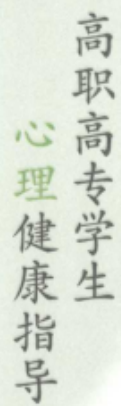 高职高专学生
心理健康指导